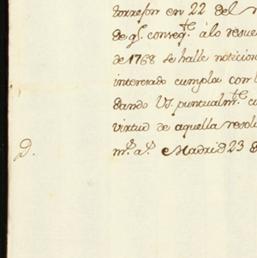 en 22 del
de qͤ. conseqͭᵉ. á lo resue
de 1768 se halle noticion
interesado cumpla con l
dando VS. puntualmͭᵉ. c
virtud de aquella resol
D. mˢ. aˢ. Madrid 23 d